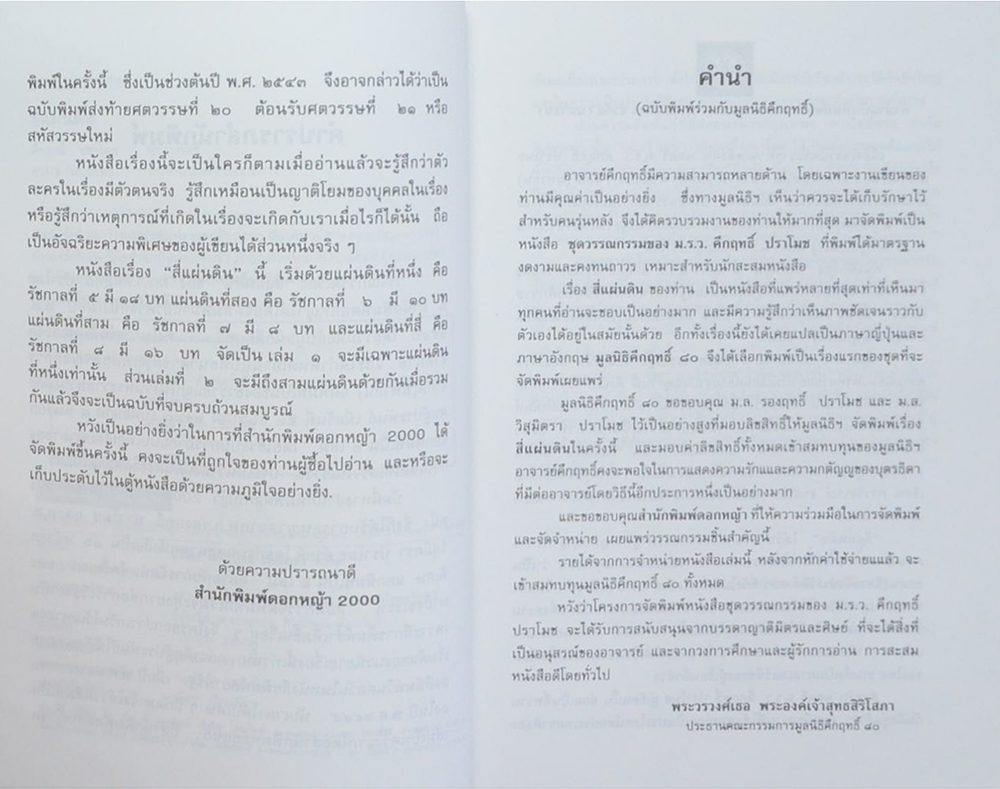 พิมพ์ในครั้งนี้ ซึ่งเป็นช่วงต้นปี พ.ศ. ๒๕๔๓ จึงอาจกล่าวได้ว่าเป็น
ฉบับพิมพ์ส่งท้ายศตวรรษที่ ๒๐ ต้อนรับศตวรรษที่ ๒๑ หรือ
สหัสวรรษใหม่
หนังสือเรื่องนี้จะเป็นใครก็ตามเมื่ออ่านแล้วจะรู้สึกว่าตัว
ละครในเรื่องมีตัวตนจริง รู้สึกเหมือนเป็นญาติโยมของบุคคลในเรื่อง
หรือรู้สึกว่าเหตุการณ์ที่เกิดในเรื่องจะเกิดกับเราเมื่อไรก็ได้นั้น ถือ
เป็นอัจฉริยะความพิเศษของผู้เขียนได้ส่วนหนึ่งจริง ๆ
หนังสือเรื่อง “สี่แผ่นดิน” นี้ เริ่มด้วยแผ่นดินที่หนึ่ง คือ
รัชกาลที่ ๕ มี ๑๘ บท แผ่นดินที่สอง คือ รัชกาลที่ ๖ มี ๑๐ บท
แผ่นดินที่สาม คือ รัชกาลที่ ๗ มี ๘ บท และแผ่นดินที่สี่ คือ
รัชกาลที่ ๘ มี ๑๖ บท จัดเป็น เล่ม ๑ จะมีเฉพาะแผ่นดิน
ที่หนึ่งเท่านั้น ส่วนเล่มที่ ๒ จะมีถึงสามแผ่นดินด้วยกันเมื่อรวม
กันแล้วจึงจะเป็นฉบับที่จบครบถ้วนสมบูรณ์
หวังเป็นอย่างยิ่งว่าในการที่สำนักพิมพ์ดอกหญ้า 2000 ได้
จัดพิมพ์ขึ้นครั้งนี้ คงจะเป็นที่ถูกใจของท่านผู้ซื้อไปอ่าน และหรือจะ
เก็บประดับไว้ในตู้หนังสือด้วยความภูมิใจอย่างยิ่ง.
ด้วยความปรารถนาดี
สำนักพิมพ์ดอกหญ้า 2000
คำนำ
(ฉบับพิมพ์ร่วมกับมูลนิธิคึกฤทธิ์)
อาจารย์คึกฤทธิ์มีความสามารถหลายด้าน โดยเฉพาะงานเขียนของ
ท่านมีคุณค่าเป็นอย่างยิ่ง ซึ่งทางมูลนิธิฯ เห็นว่าควรจะได้เก็บรักษาไว้
สำหรับคนรุ่นหลัง จึงได้คิดรวบรวมงานของท่านให้มากที่สุด มาจัดพิมพ์เป็น
หนังสือ ชุดวรรณกรรมของ ม.ร.ว. คึกฤทธิ์ ปราโมช ที่พิมพ์ได้มาตรฐาน
งดงามและคงทนถาวร เหมาะสำหรับนักสะสมหนังสือ
เรื่อง สี่แผ่นดิน ของท่าน เป็นหนังสือที่แพร่หลายที่สุดเท่าที่เห็นมา
ทุกคนที่อ่านจะชอบเป็นอย่างมาก และมีความรู้สึกว่าเห็นภาพชัดเจนราวกับ
ตัวเองได้อยู่ในสมัยนั้นด้วย อีกทั้งเรื่องนี้ยังได้เคยแปลเป็นภาษาญี่ปุ่นและ
ภาษาอังกฤษ มูลนิธิคึกฤทธิ์ ๘๐ จึงได้เลือกพิมพ์เป็นเรื่องแรกของชุดที่จะ
จัดพิมพ์เผยแพร่
มูลนิธิคึกฤทธิ์ ๘๐ ขอขอบคุณ ม.ล. รองฤทธิ์ ปราโมช และ ม.ล.
วิสุมิตรา ปราโมช ไว้เป็นอย่างสูงที่มอบลิขสิทธิ์ให้มูลนิธิฯ จัดพิมพ์เรื่อง
สี่แผ่นดินในครั้งนี้ และมอบค่าลิขสิทธิ์ทั้งหมดเข้าสมทบทุนของมูลนิธิฯ
อาจารย์คึกฤทธิ์คงจะพอใจในการแสดงความรักและความกตัญญูของบุตรธิดา
ที่มีต่ออาจารย์โดยวิธีนี้อีกประการหนึ่งเป็นอย่างมาก
และขอขอบคุณสำนักพิมพ์ดอกหญ้า ที่ให้ความร่วมมือในการจัดพิมพ์
และจัดจำหน่าย เผยแพร่วรรณกรรมชิ้นสำคัญนี้
รายได้จากการจำหน่ายหนังสือเล่มนี้ หลังจากหักค่าใช้จ่ายแแล้ว จะ
เข้าสมทบทุนมูลนิธิคึกฤทธิ์ ๘๐ ทั้งหมด
หวังว่าโครงการจัดพิมพ์หนังสือชุดวรรณกรรมของ ม.ร.ว. คึกฤทธิ์
ปราโมช จะได้รับการสนับสนุนจากบรรดาญาติมิตรและศิษย์ ที่จะได้สิ่งที่
เป็นอนุสรณ์ของอาจารย์ และจากวงการศึกษาและผู้รักการอ่าน การสะสม
หนังสือดีโดยทั่วไป
พระวรวงศ์เธอ พระองค์เจ้าสุทธสิริโสภา
ประธานคณะกรรมการมูลนิธิคึกฤทธิ์ ๘๐